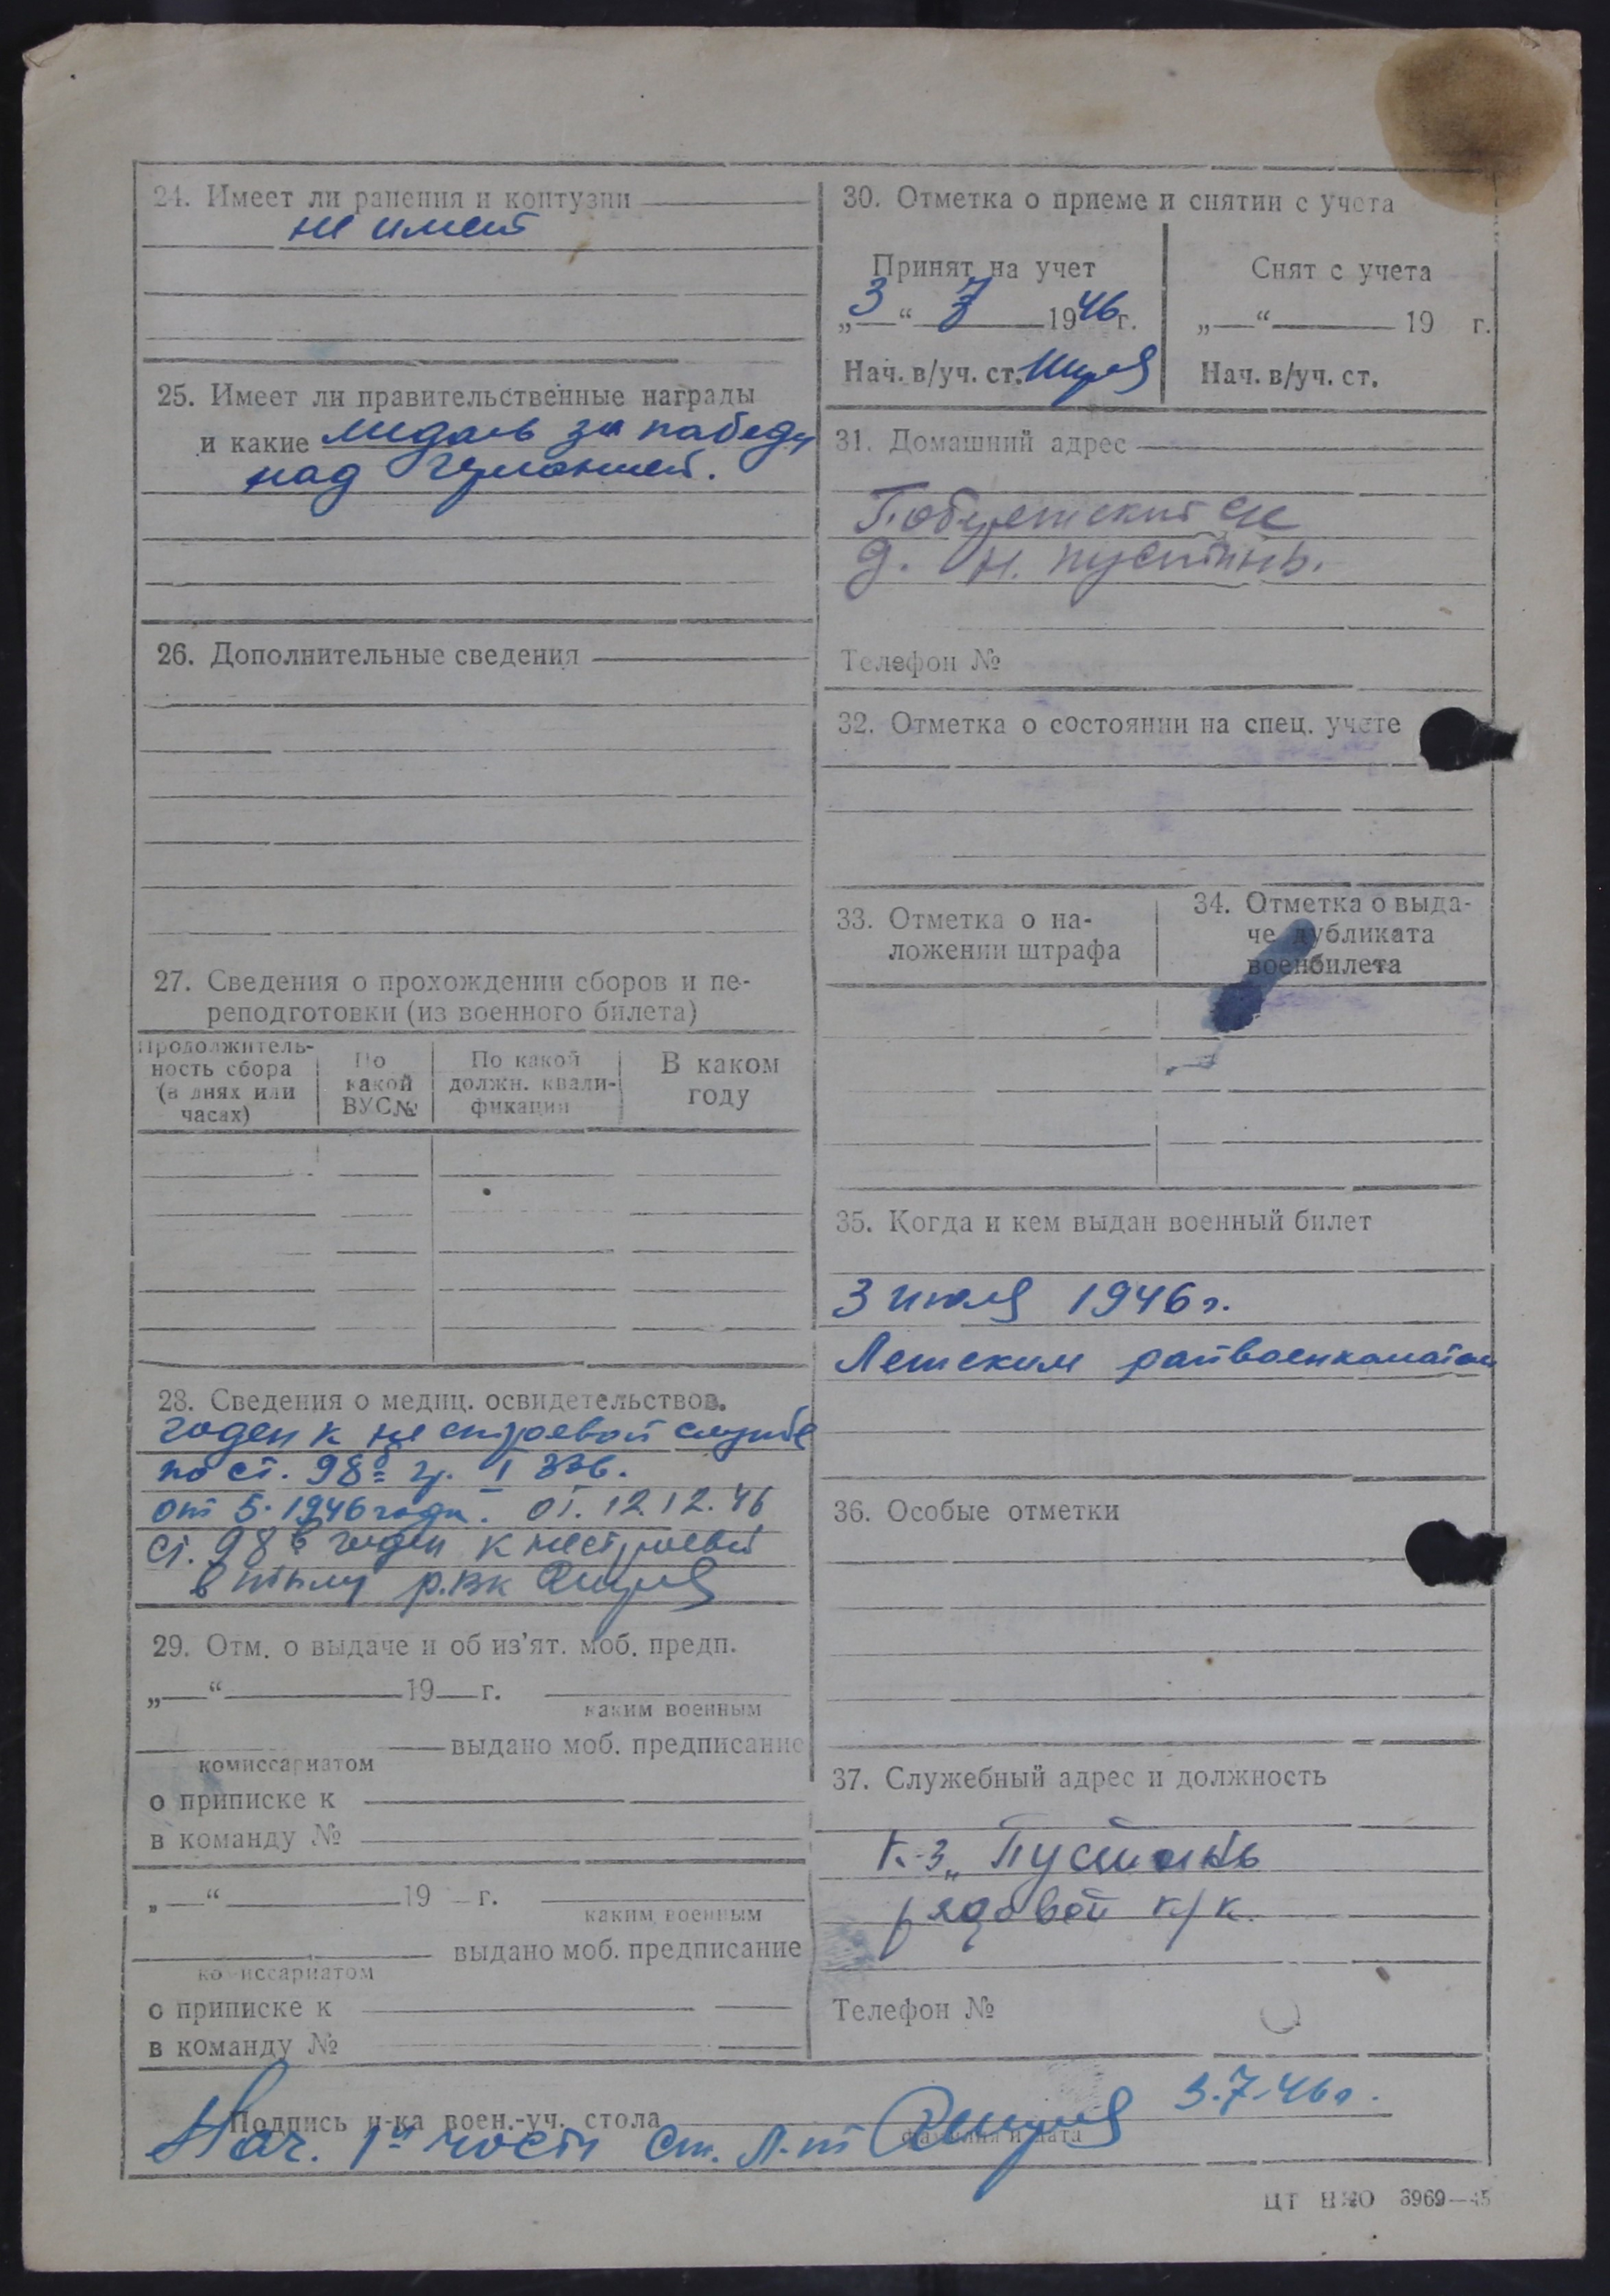 24. Имеет ли ранения и контузии
не имеет
25. Имеет ли правительственные награды
и какие медаль за победу
над Германией.
26. Дополнительные сведения
27. Сведения о прохождении сборов и пе-
реподготовки (из военного билета)
Продолжитель-
ность сбора
(в днях или
часах)
По
какой
ВУС№
По какой
должн. квали-
фикации
В каком
году
28. Сведения о медиц. освидетельствов.
годен к не строевой службе
по ст. 98 гр. I 336.
от 5. 1946 года. от. 12.12.46
ст. 98 в годен к нестроевой
в тылу р.вк
29. Отм. о выдаче и об из'ят. моб. предп.
„—“ 19 г.
каким военным
выдано моб. предписание
комиссариатом
о приписке к
в команду №
„—“ 19 г.
каким военным
выдано моб. предписание
комиссариатом
о приписке к
в команду №
30. Отметка о приеме и снятии с учета
Принят на учет
„3“ 7 1946г.
Нач. в/уч. ст.
Снят с учета
„—“ 19 г.
Нач. в/уч. ст.
31. Домашний адрес
д. Н. пустынь.
Телефон №
32. Отметка о состоянии на спец. учете
33. Отметка о на-
ложении штрафа
34. Отметка о выда-
че дубликата
военбилета
35. Когда и кем выдан военный билет
3 июля 1946 г.
Летским райвоенкоматом
36. Особые отметки
37. Служебный адрес и должность
к-з „Пустынь
рядовой к/к.
Телефон №
Подпись н-ка воен.-уч. стола
3.7.46г.
Нач. 1й части Ст. Л-т
фамилия и дата
ЦТ НКО 3969—45